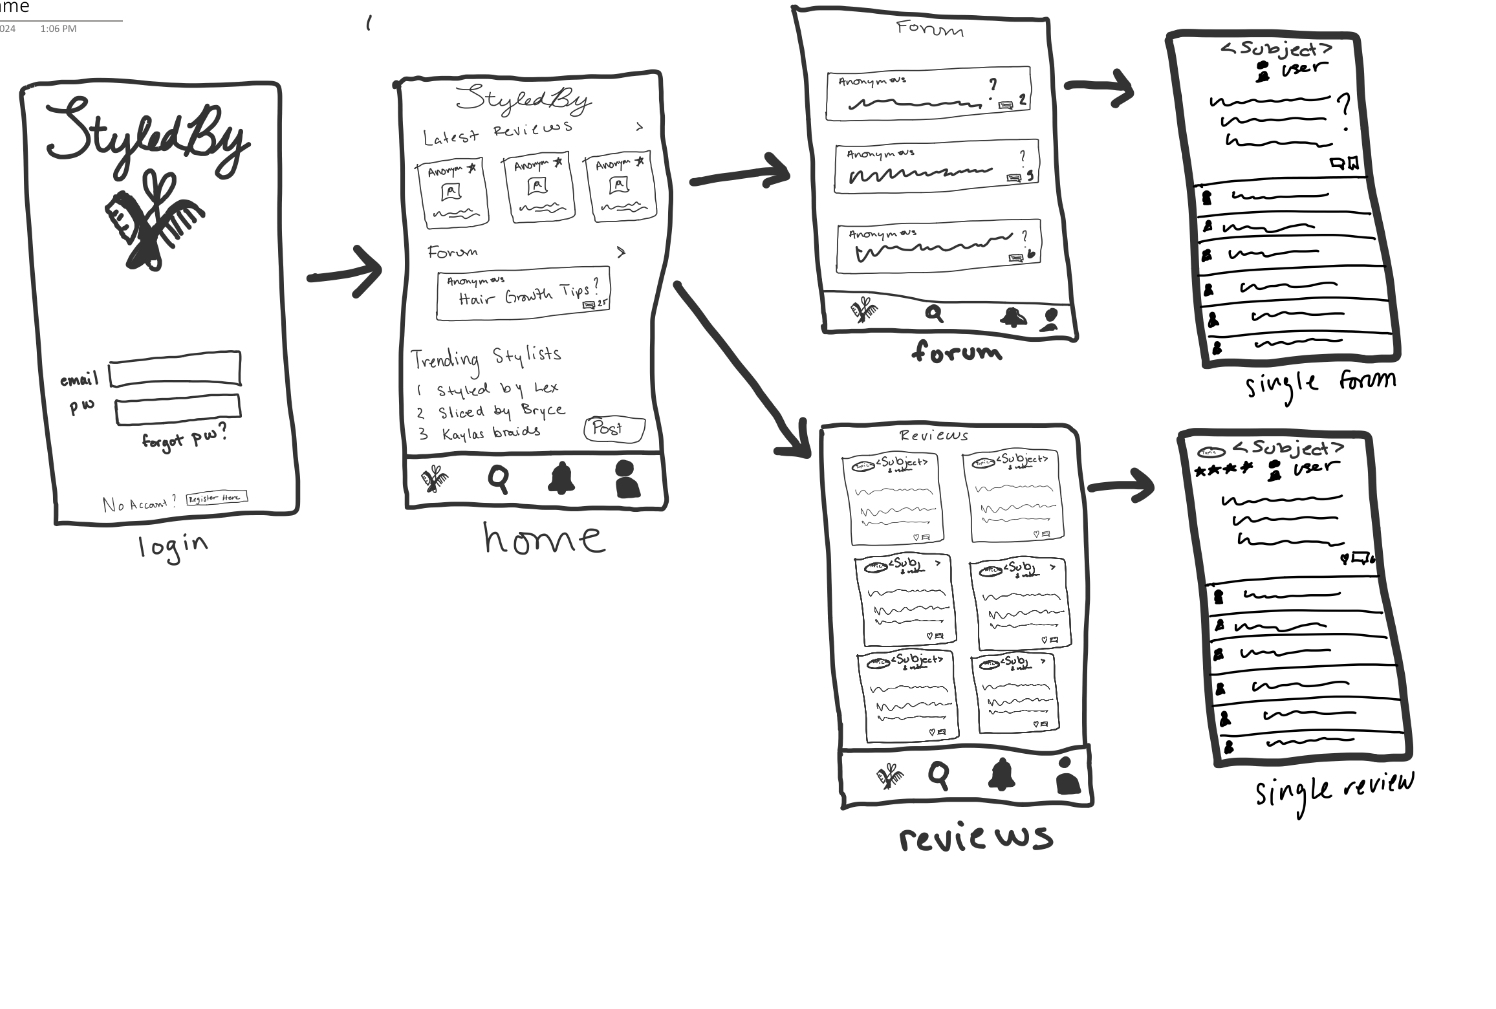 ame
024 1:06 PM
StyledBy
email
pw
forgot pw?
No Account? Register Here
login
StyledBy
Latest Reviews >
Anonym
Anonym
Anonym
Forum >
Anonymous
Hair Growth Tips?
25
Trending Stylists
1 Styled by Lex
2 Sliced by Bryce
3 Kaylas braids
Post
home
Forum
Anonymous
?
2
Anonymous
?
9
Anonymous
?
6
forum
<Subject>
user
?
single forum
Reviews
<Subject>
<Subject>
<Subj >
<Subj >
<Subject>
<Subj >
reviews
<Subject>
user
single review